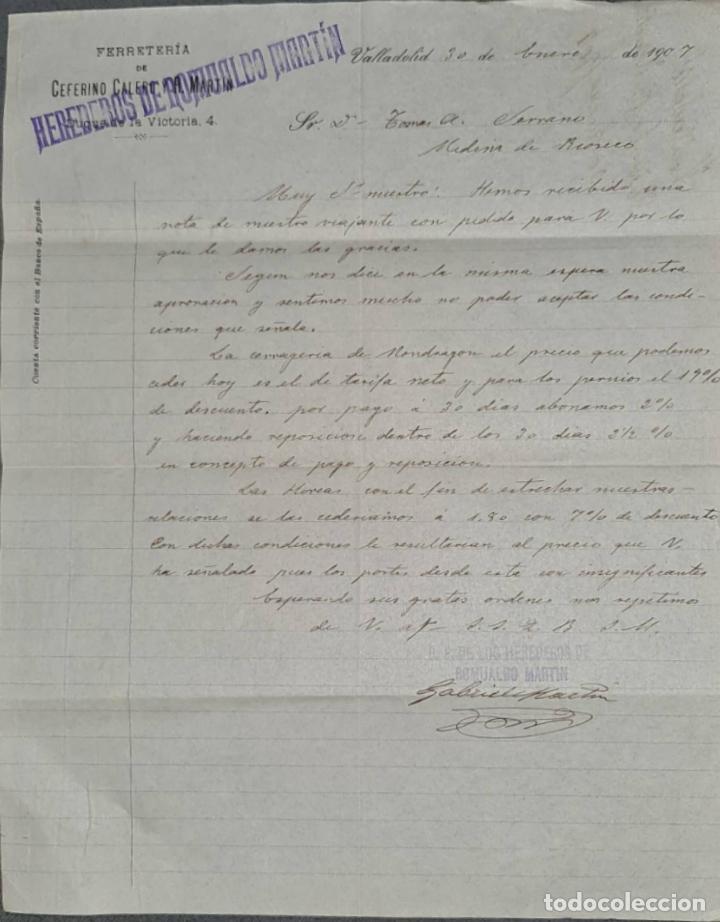 FERRETERÍA
DE
CEFERINO CALERO Y R. MARTÍN
HEREDEROS DE ROMUALDO MARTÍN
Duque de la Victoria, 4.
Cuenta corriente con el Banco de España.
Valladolid 30 de Enero de 1907
Sr. Dn Tomas A. Serrano
Medina de Rioseco
Muy Sr nuestro: Hemos recibido una
nota de nuestro viajante con pedido para V. por lo
que le damos las gracias.
Segun nos dice en la misma espera nuestra
aprovacion y sentimos mucho no poder aceptar las condi-
ciones que señala.
La cerrageria de Mondragon el precio que podemos
ceder hoy es el de tarifa neto y para los pernios el 19%
de descuento, por pago á 30 dias abonamos 2%
y haciendo reposicion dentro de los 30 dias 2 1/2 %
en concepto de pago y reposicion.
Las con el fin de estrechar nuestras
relaciones se las cederiamos á 1.80 con 7% de descuento
Con dichas condiciones le resultarian al precio que V.
ha señalado pues los portes desde esta son insignificantes
Esperando sus gratas ordenes nos repetimos
de V. af S. S. Q. B. S. M.
P. P. DE LOS HEREDEROS DE
ROMUALDO MARTIN
Gabriel Martin
todocoleccion